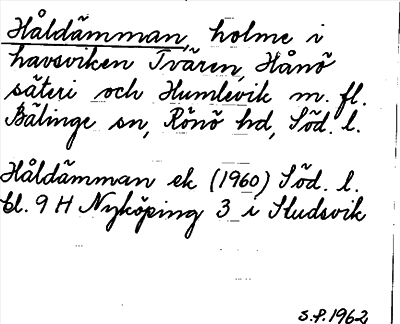 Håldämman, holme i
havsviken Tvären, Hånö
säteri och Humlevik m. fl.
Bälinge sn, Rönö hd, Söd. l.
Håldämman ek (1960) Söd. l.
bl. 9 H Nyköping 3 i Studsvik
S.P. 1962